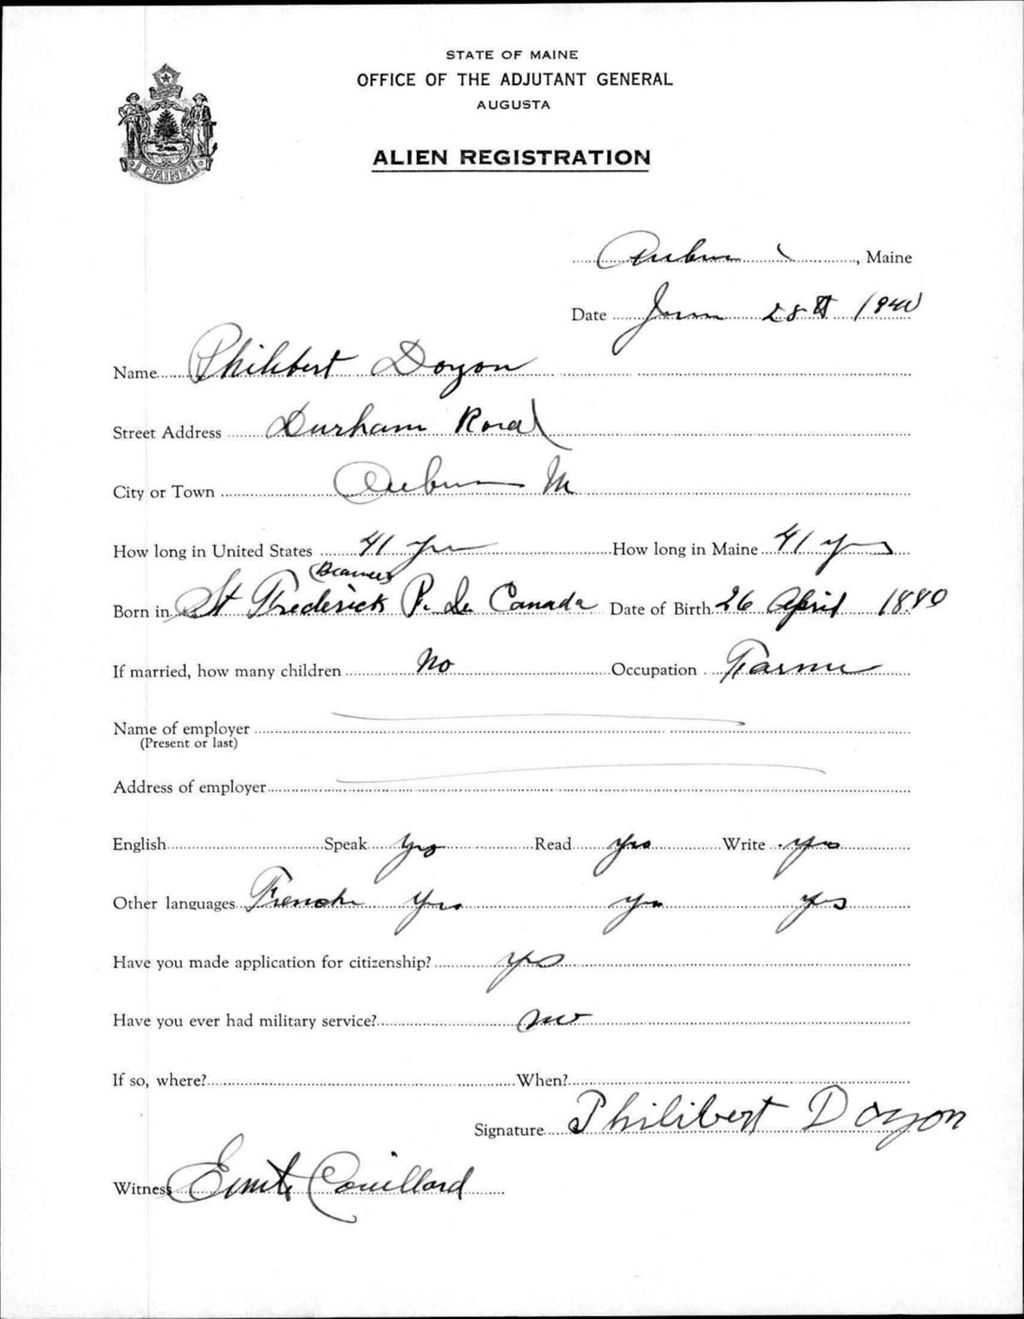 STATE OF MAINE
OFFICE OF THE ADJUTANT GENERAL
AUGUSTA
ALIEN REGISTRATION
Auburn, Maine
Date June 28th 1940
Name Philibert Doyon
Street Address Durham Road
City or Town Auburn M
How long in United States 41 yrs How long in Maine 41 yrs
(Beauce)
Born in St Frederick P. Q. Canada Date of Birth 26 April 1880
If married, how many children No Occupation Farmer
Name of employer
(Present or last)
Address of employer
English Speak yes Read yes Write yes
Other languages French yes yes yes
Have you made application for citizenship? yes
Have you ever had military service? no
If so, where? When?
Signature Philibert Doyon
Witness Emile Couillard
MAINE